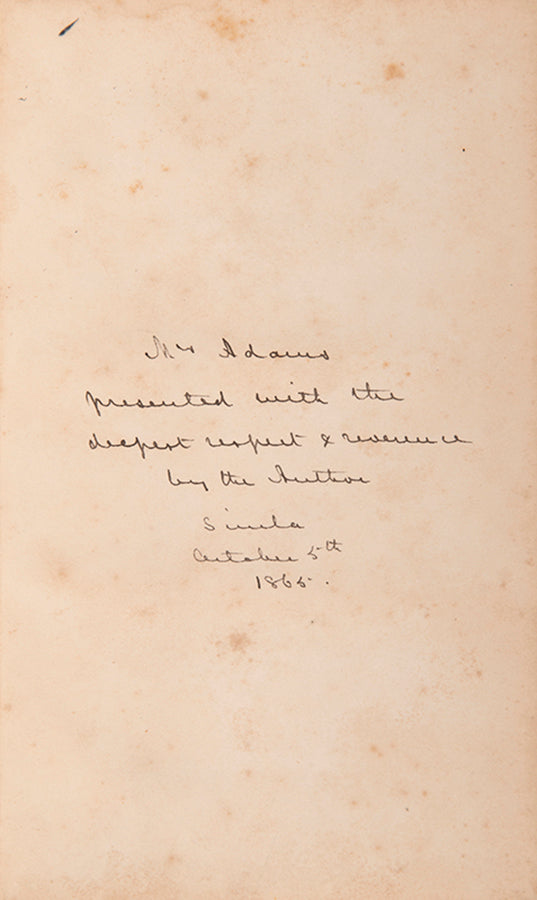 Mr Adams
presented with the
deepest respect & reverence
by the Author
Simla
October 5th
1865.